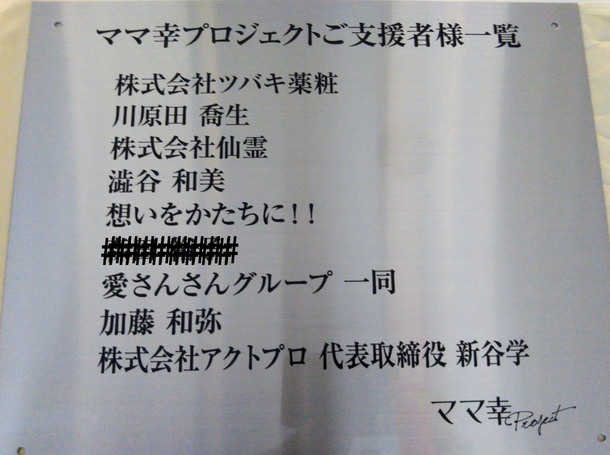 ママ幸プロジェクトご支援者様一覧
株式会社ツバキ薬粧
川原田 喬生
株式会社仙霊
澁谷 和美
想いをかたちに！！
愛さんさんグループ 一同
加藤 和弥
株式会社アクトプロ 代表取締役 新谷学
ママ幸 Project